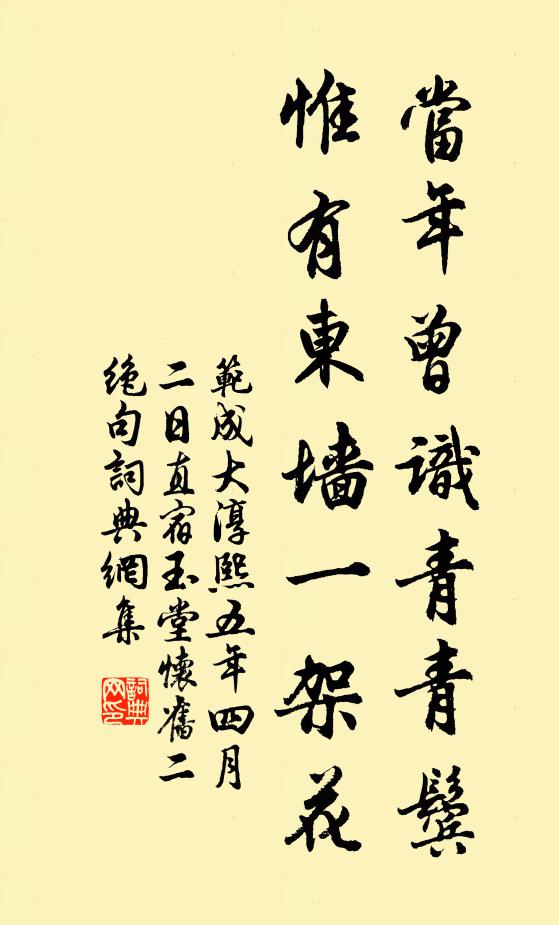 當年曾識青青鬢
惟有東墻一架花
範成大淳熙五年四月
二日直宿玉堂懷舊二
絶句詞典網集
詞典
网印